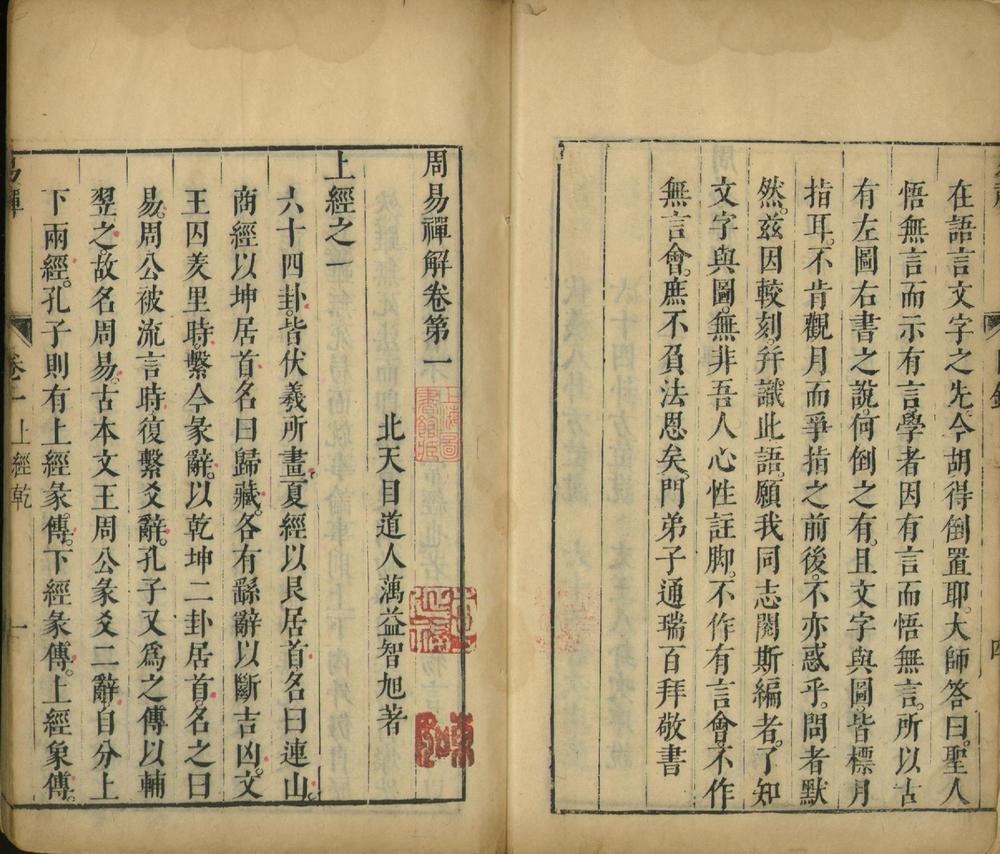 在語言文字之先。今胡得倒置耶。大師答曰。聖人
悟無言而示有言。學者因有言而悟無言。所以古
有左圖右書之說。何倒之有。且文字與圖。皆標月
指耳。不肯觀月而爭指之前後。不亦惑乎。問者默
然。茲因較刻。并識此語。願我同志閱斯編者。了知
文字與圖。無非吾人心性註脚。不作有言會。不作
無言會。庶不負法恩矣。門弟子通瑞百拜敬書
周易禪解卷第一
北天目道人蕅益智旭著
上經之一
六十四卦。皆伏羲所畫。夏經以艮居首。名曰連山。
商經以坤居首。名曰歸藏。各有繇辭以斷吉凶。文
王囚羑里時。繫今彖辭。以乾坤二卦居首。名之曰
易。周公被流言時。復繫爻辭。孔子又爲之傳以輔
翌之。故名周易。古本文王周公彖爻二辭。自分上
下兩經。孔子則有上經彖傳。下經彖傳。上經象傳。
卷一 上經乾 一
上海圖書館藏